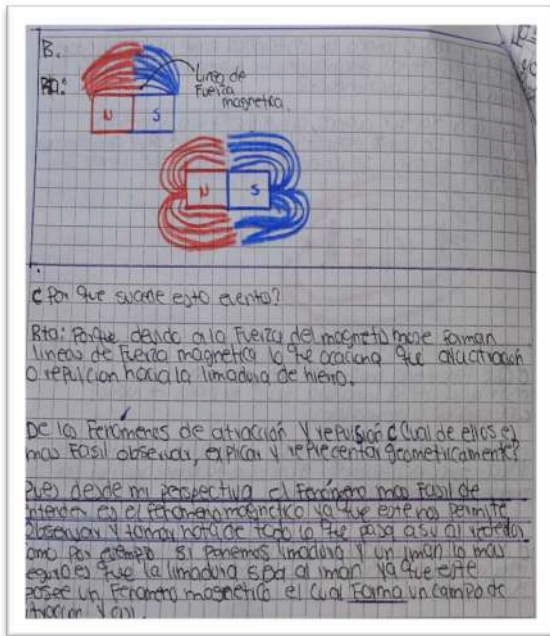 B.
Rta:
Linea de
Fuerza
magnetica
N S
N S
¿Por que sucede esto evento?
Rta: Porque devido a la Fuerza del magnetismo se forman
lineas de Fuerza magnetica lo que ocaciona que atracion
o repulcion hacia la limadura de hierro.
De los Fenómenos de atracción y repulsión ¿Cual de ellos es
mas Fasil observar, explicar y reprecentar geometricamente?
Pues desde mi perspectiva el Fenómeno mas Fasil de
entender es el fenomeno magnetico ya que este nos permite
observar y tomar nota de todo lo que pasa a su al rededor
como por ejemplo si ponemos limadura y un iman lo mas
es que la limadura al iman ya que este
posee un Fenomeno magnetico el cual Forma un campo de